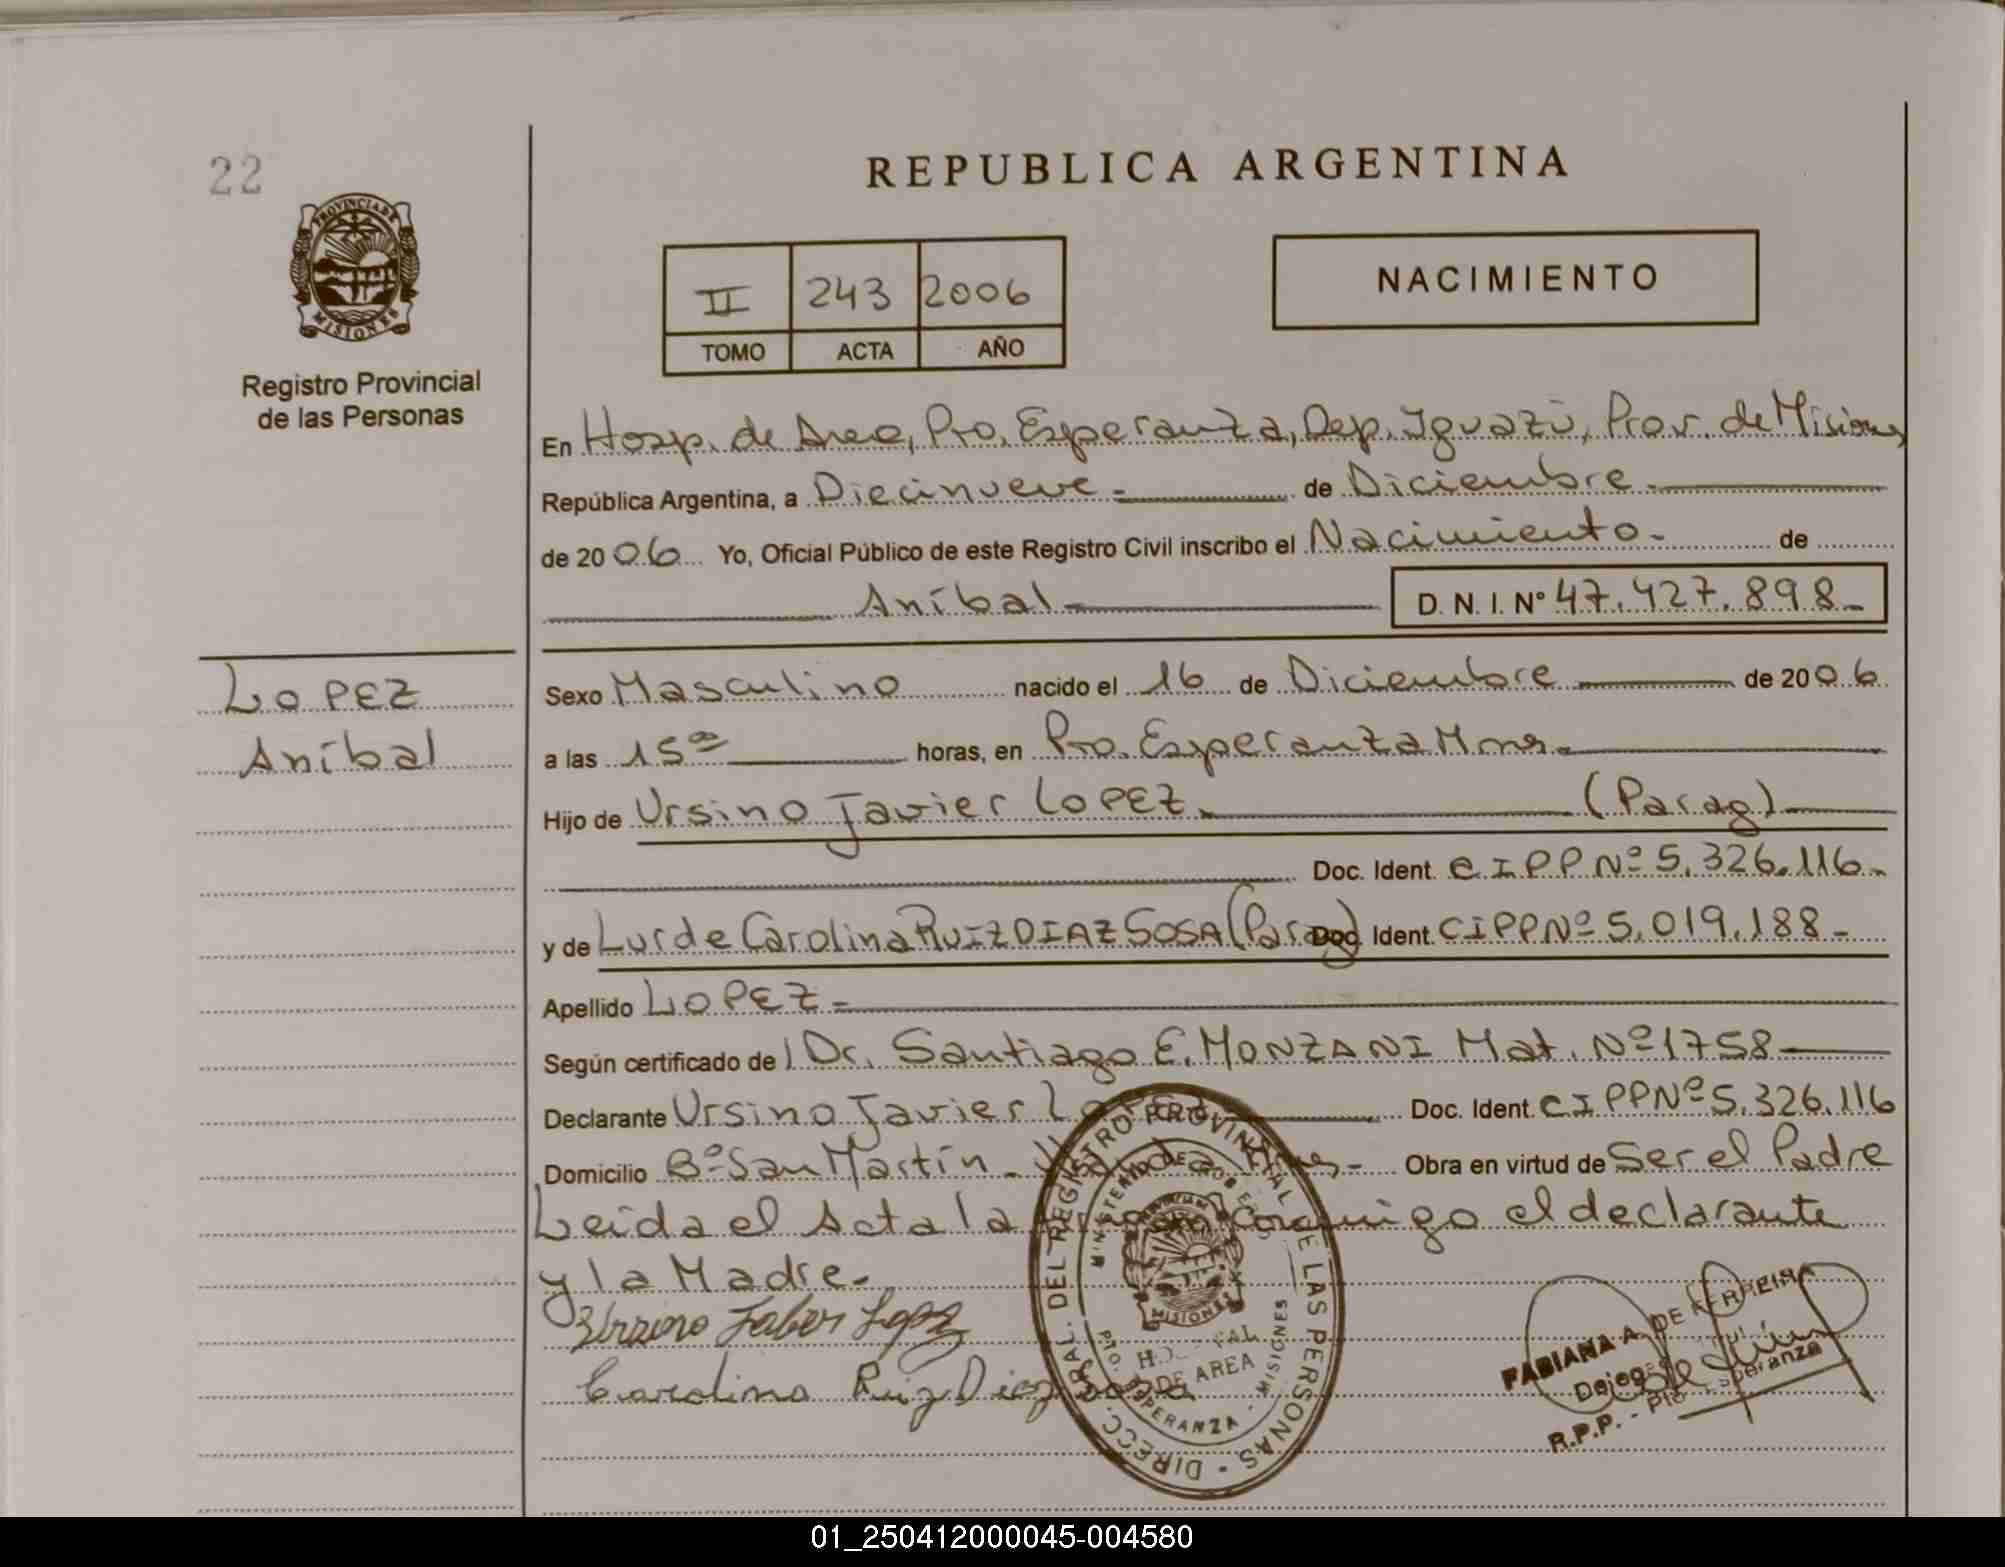 22
PROVINCIA DE
MISIONES
Registro Provincial
de las Personas
REPUBLICA ARGENTINA
II 243 2006
TOMO ACTA AÑO
NACIMIENTO
En Hosp. de Area, Pto. Esperanza, Dep. Iguazú, Prov. de Misiones,
República Argentina, a Diecinueve.- de Diciembre.-
de 2006 Yo, Oficial Público de este Registro Civil inscribo el Nacimiento.- de
Aníbal.-
D. N. I. Nº 47.427.898.-
LOPEZ
Aníbal
Sexo Masculino nacido el 16 de Diciembre de 2006
a las 15ºº horas, en Pto. Esperanza Mnes.-
Hijo de Ursino Javier LOPEZ.- (Parag)
Doc. Ident. C I P P Nº 5.326.116.-
y de Lurde Carolina RUIZ DIAZ SOSA (Parag) Doc. Ident. C I P P Nº 5.019.188.-
Apellido LOPEZ.-
Según certificado de Dr. Santiago E. MONZANI Mat. Nº 1758
Declarante Ursino Javier LOPEZ Doc. Ident. C I P P Nº 5.326.116
Domicilio Bº San Martín - Mnes.- Obra en virtud de Ser el Padre
Leída el Acta la firman conmigo el declarante
y la Madre.-
Carolina Ruiz Diaz Sosa
DIRECC. GRAL. DEL REGISTRO PROVINCIAL DE LAS PERSONAS
MINISTERIO DE GOBIERNO
MISIONES
HOSPITAL
DE AREA
PTO. ESPERANZA - MISIONES
FABIANA A. DE FERREIRA
Delegada
R.P.P. - Pto. Esperanza
01_250412000045-004580